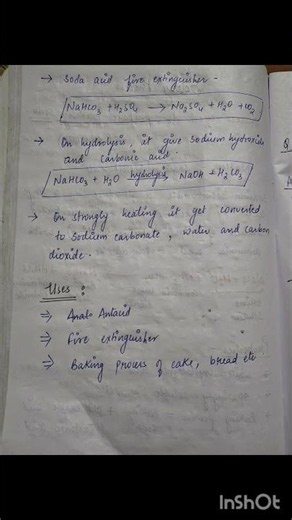 → Soda acid fire extinguisher -
NaHCO3 + H2SO4 → Na2SO4 + H2O + CO2
→ On hydrolysis it give Sodium hydroxide
and Carbonic acid
NaHCO3 + H2O hydrolysis NaOH + H2CO3
→ On strongly heating it get converted
to Sodium carbonate, water and carbon
dioxide.
Uses :
⇒ Antacid
⇒ Fire extinguisher
⇒ Baking process of cake, bread etc
InShOt